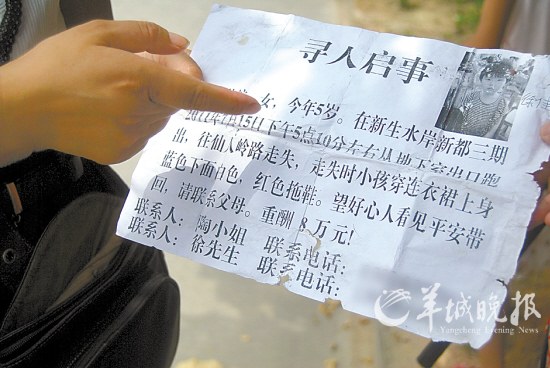 寻人启事
女，今年5岁。在新生水岸新都三期
2011年 15日下午5点10分左右从地下室出口跑
出，往仙人岭路走失，走失时小孩穿连衣裙上身
蓝色下面白色，红色拖鞋。望好心人看见平安带
回，请联系父母。重酬 8万元！
联系人：陶小姐 联系电话：
联系人：徐先生 联系电话：
羊城晚报
Yangcheng Evening News